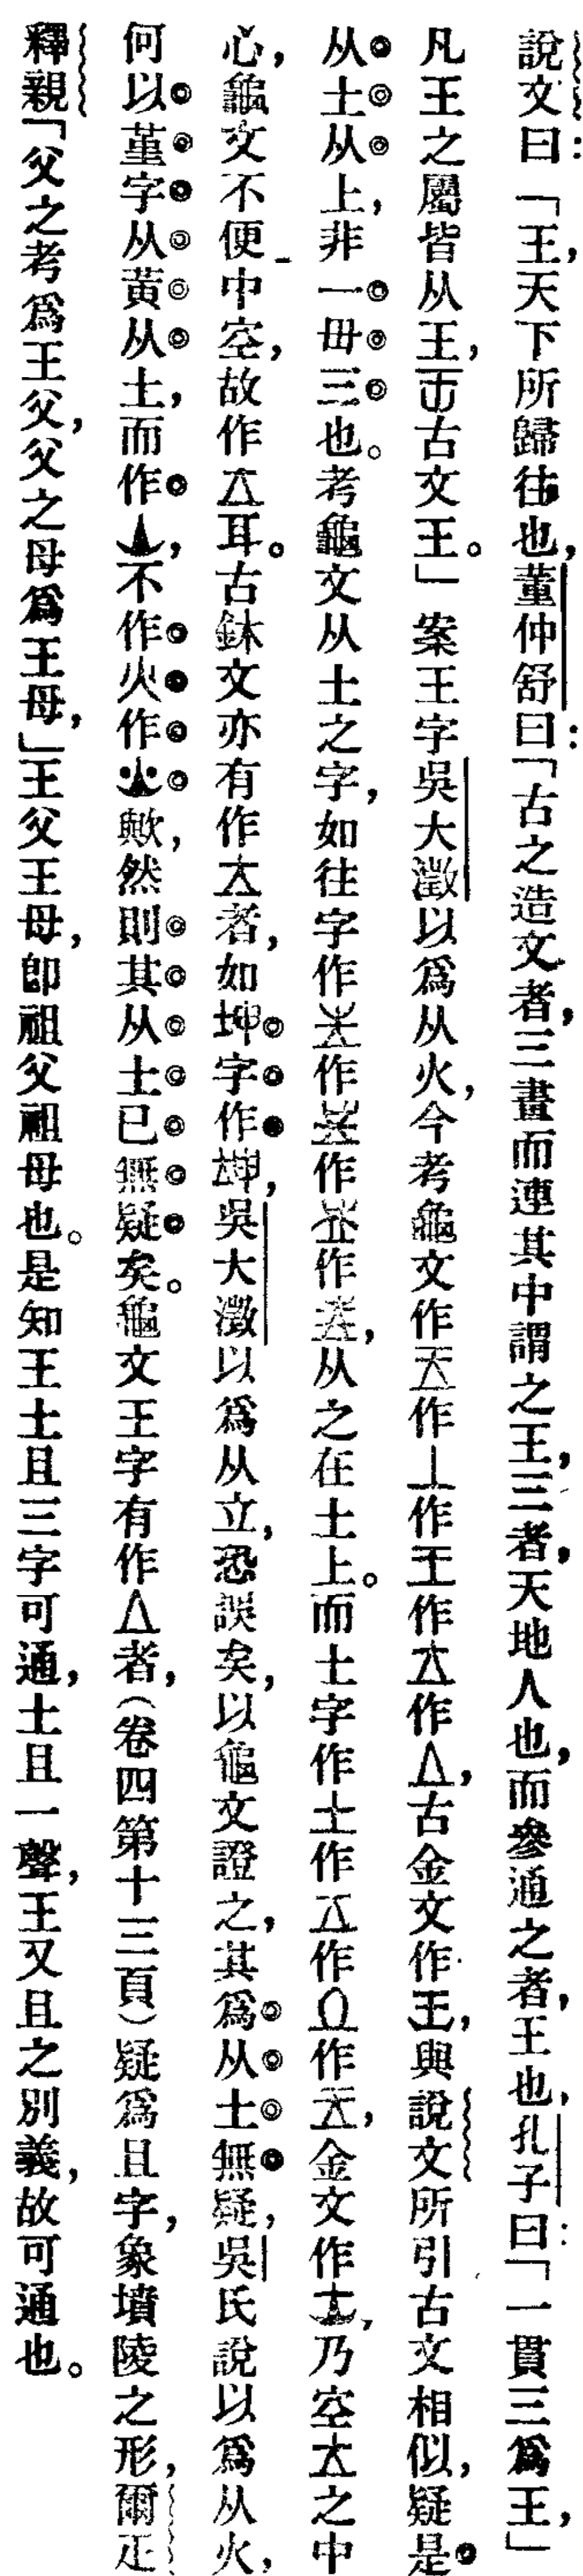 說文曰:「王,天下所歸往也,董仲舒曰:「古之造文者,三畫而連其中謂之王,三者,天地人也,而參通之者,王也,孔子曰:「一貫三爲王,」
凡王之屬皆从王,古文王。」案王字吳大澂以爲从火,今考龜文作作作作作,古金文作,與說文所引古文相似,疑是
从土从上,非一毌三也。考龜文从土之字,如往字作作作作,从之在土上。而土字作作作作,金文作,乃空之中
心,龜文不便中空,故作耳。古鉢文亦有作者,如坤字作,吳大澂以爲从立,恐誤矣,以龜文證之,其爲从土無疑,吳氏說以爲从火,
何以堇字从黃从土,而作,不作火作歟,然則其从士已無疑矣。龜文王字有作者,(卷四第十三頁)疑爲且字,象墳陵之形,爾疋
釋親「父之考爲王父,父之母爲王母,」王父王母,卽祖父祖母也。是知王土且三字可通,土且一聲,王又且之別義,故可通也。